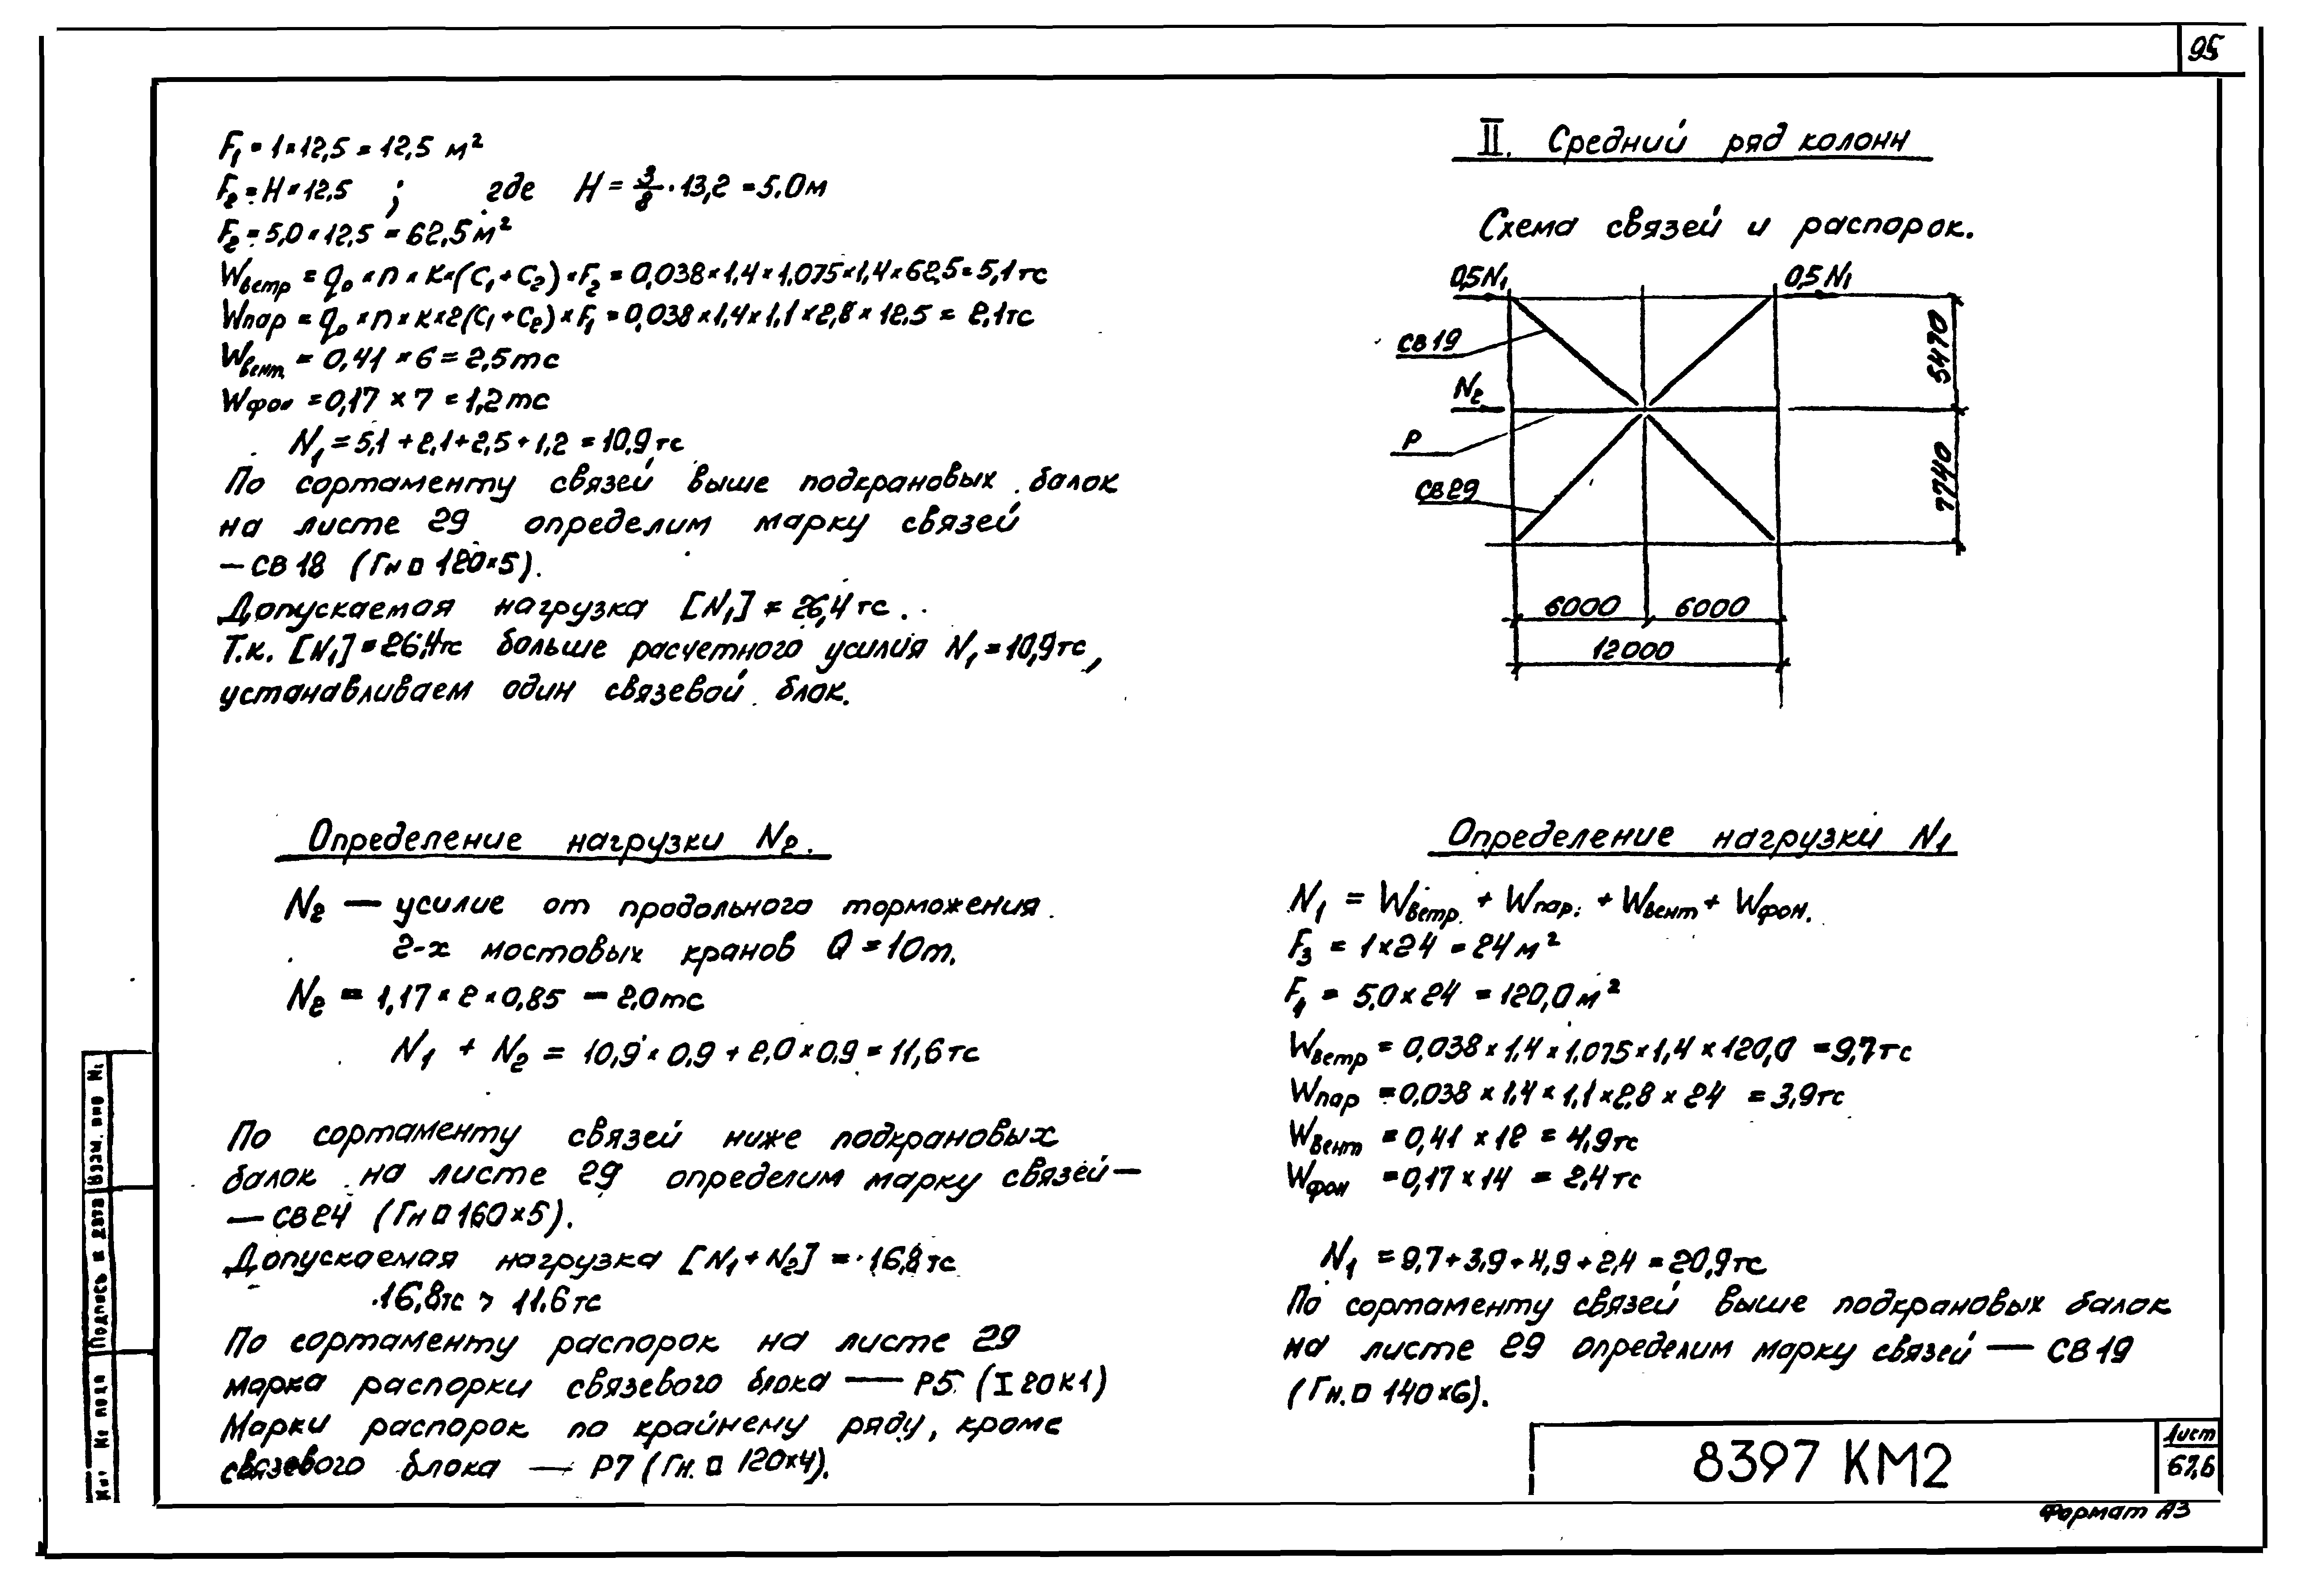 95
F₁ = 1×12,5 = 12,5 м²
F₂ = H×12,5 ; где H = 3/8 · 13,2 = 5.0м
F₂ = 5,0×12,5 = 62,5м²
Wветр = q₀ × n × к×(C₁ + C₂) × F₂ = 0,038×1,4×1,075×1,4×62,5=5,1тс
Wпар = q₀ × n × к×2(C₁ + C₂) × F₁ = 0,038×1,4×1,1×2,8×12,5 = 2,1тс
Wвент. = 0,41 × 6 = 2,5тс
Wфон = 0,17 × 7 = 1,2тс
N₁ = 5,1 + 2,1 + 2,5 + 1,2 = 10,9тс
По сортаменту связей выше подкрановых балок
на листе 29 определим марку связей
— СВ18 (Гн □ 120×5).
Допускаемая нагрузка [N₁] = 26,4тс.
Т.к. [N₁] = 26,4тс больше расчетного усилия N₁ = 10,9тс,
устанавливаем один связевой блок.
Определение нагрузки N₂.
N₂ — усилие от продольного торможения
2-х мостовых кранов Q = 10т.
N₂ = 1,17 × 2 × 0,85 = 2,0тс
N₁ + N₂ = 10,9 × 0,9 + 2,0 × 0,9 = 11,6тс
По сортаменту связей ниже подкрановых
балок на листе 29 определим марку связей —
— СВ24 (Гн □ 160×5).
Допускаемая нагрузка [N₁ + N₂] = 16,8тс
16,8тс > 11.6тс
По сортаменту распорок на листе 29
марка распорки связевого блока — Р5 (I 20К1)
Марки распорок по крайнему ряду, кроме
связевого блока — Р7 (Гн. □ 120×4).
II. Средний ряд колонн
Схема связей и распорок.
0,5N₁
0,5N₁
СВ19
N₂
Р
СВ29
5470
7740
6000
6000
12000
Определение нагрузки N₁
N₁ = Wветр. + Wпар. + Wвент + Wфон.
F₃ = 1×24 = 24м²
F₄ = 5,0×24 = 120,0м²
Wветр = 0,038×1,4×1,075×1,4×120,0 = 9,7тс
Wпар = 0,038×1,4×1,1×2,8×24 = 3,9тс
Wвент = 0,41×12 = 4,9тс
Wфон = 0,17×14 = 2,4тс
N₁ = 9,7+3,9+4,9+2,4 = 20,9тс
По сортаменту связей выше подкрановых балок
на листе 29 определим марку связей — СВ19
(Гн. □ 140×6).
8397 КМ2
Лист
67,6
Формат А3
Взам. инв №
Подпись и дата
Инв № подл